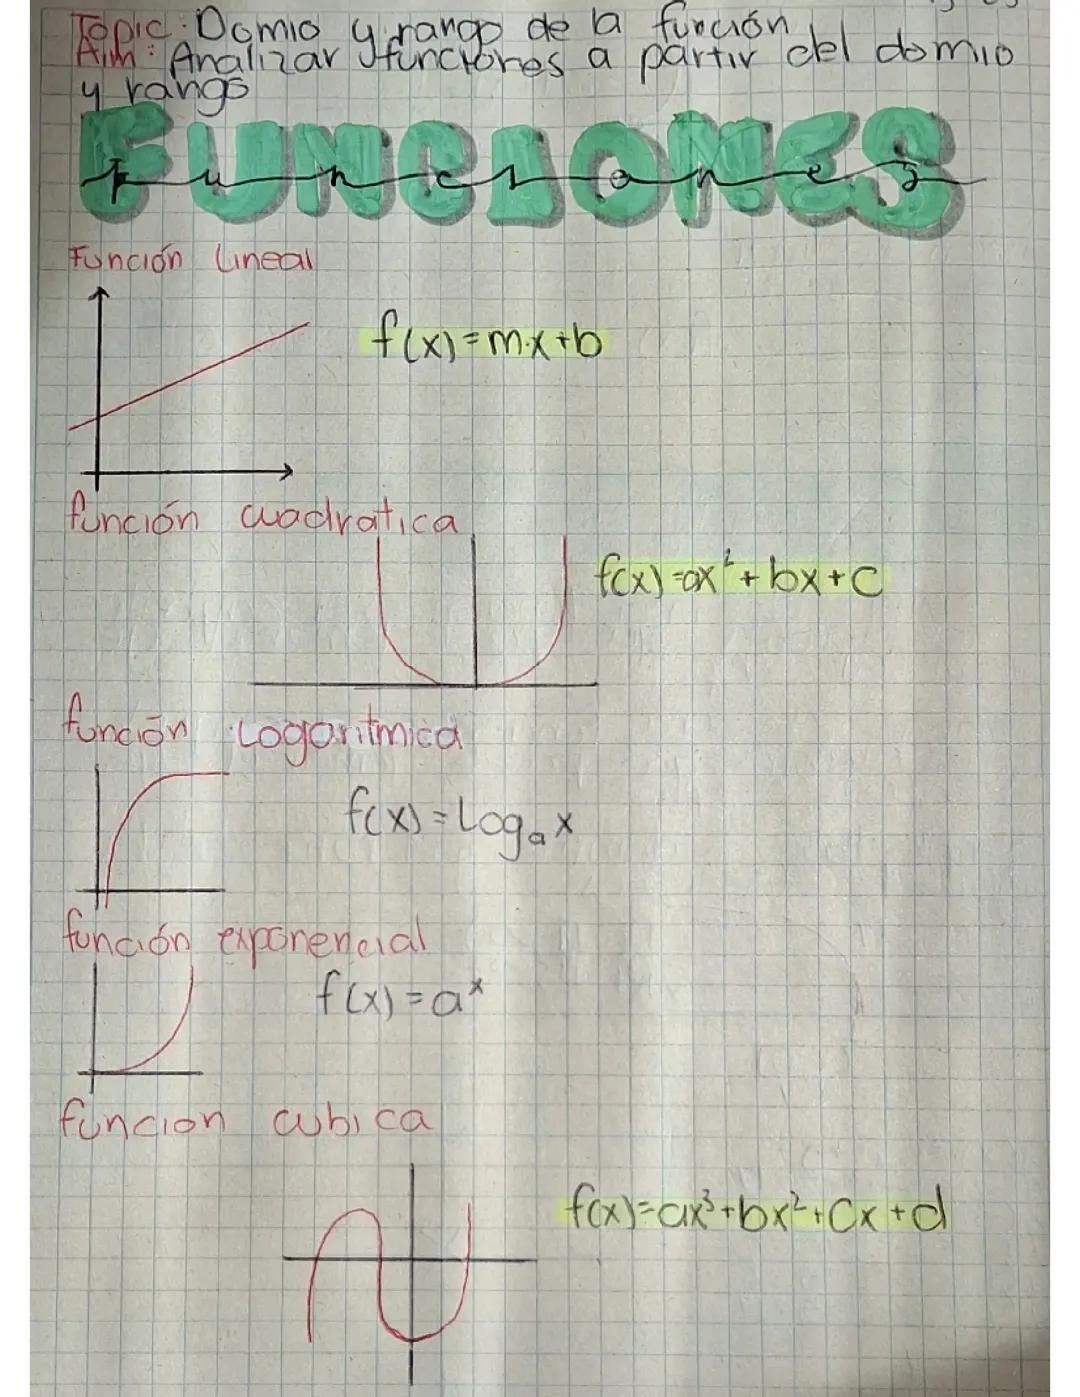 Topic: Domio y rango de la función
Aim: Analizar funciones a partir del domio
y rango
FUNCIONES
funciones
Función Lineal
f(x)=m·x+b
función cuadratica
f(x)=ax²+bx+c
función Logaritmica
f(x)=Logₐx
función exponencial
f(x)=aˣ
funcion cubica
f(x)=ax³+bx²+cx+d